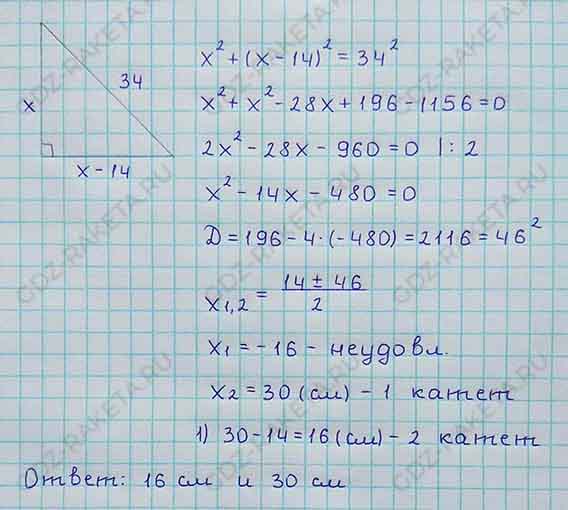 x² + (x - 14)² = 34²
34
x
x² + x² - 28x + 196 - 1156 = 0
2x² - 28x - 960 = 0 |: 2
x - 14
x² - 14x - 480 = 0
D = 196 - 4·(-480) = 2116 = 46²
x₁,₂ = (14 ± 46)/2
x₁ = -16 - неудовл.
x₂ = 30 (см) - 1 катет
1) 30 - 14 = 16 (см) - 2 катет
Ответ: 16 см и 30 см
GDZ-RAKETA.RU